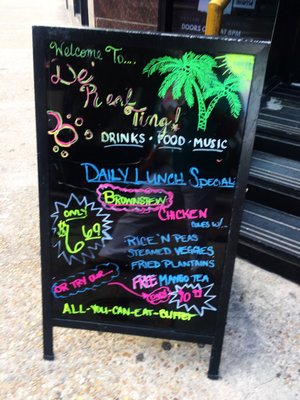 DOORS OPEN AT 6PM
Welcome To....
De'
Real
Ting!
DRINKS • FOOD • MUSIC
DAILY LUNCH SPECIAL
ONLY
$6.69
BROWNSTEW
CHICKEN
COMES W/...
RICE 'N PEAS
STEAMED VEGGIES
FRIED PLANTAINS
FREE MANGO TEA
OR TRY OUR
ONLY
ALL-YOU-CAN-EAT-BUFFET